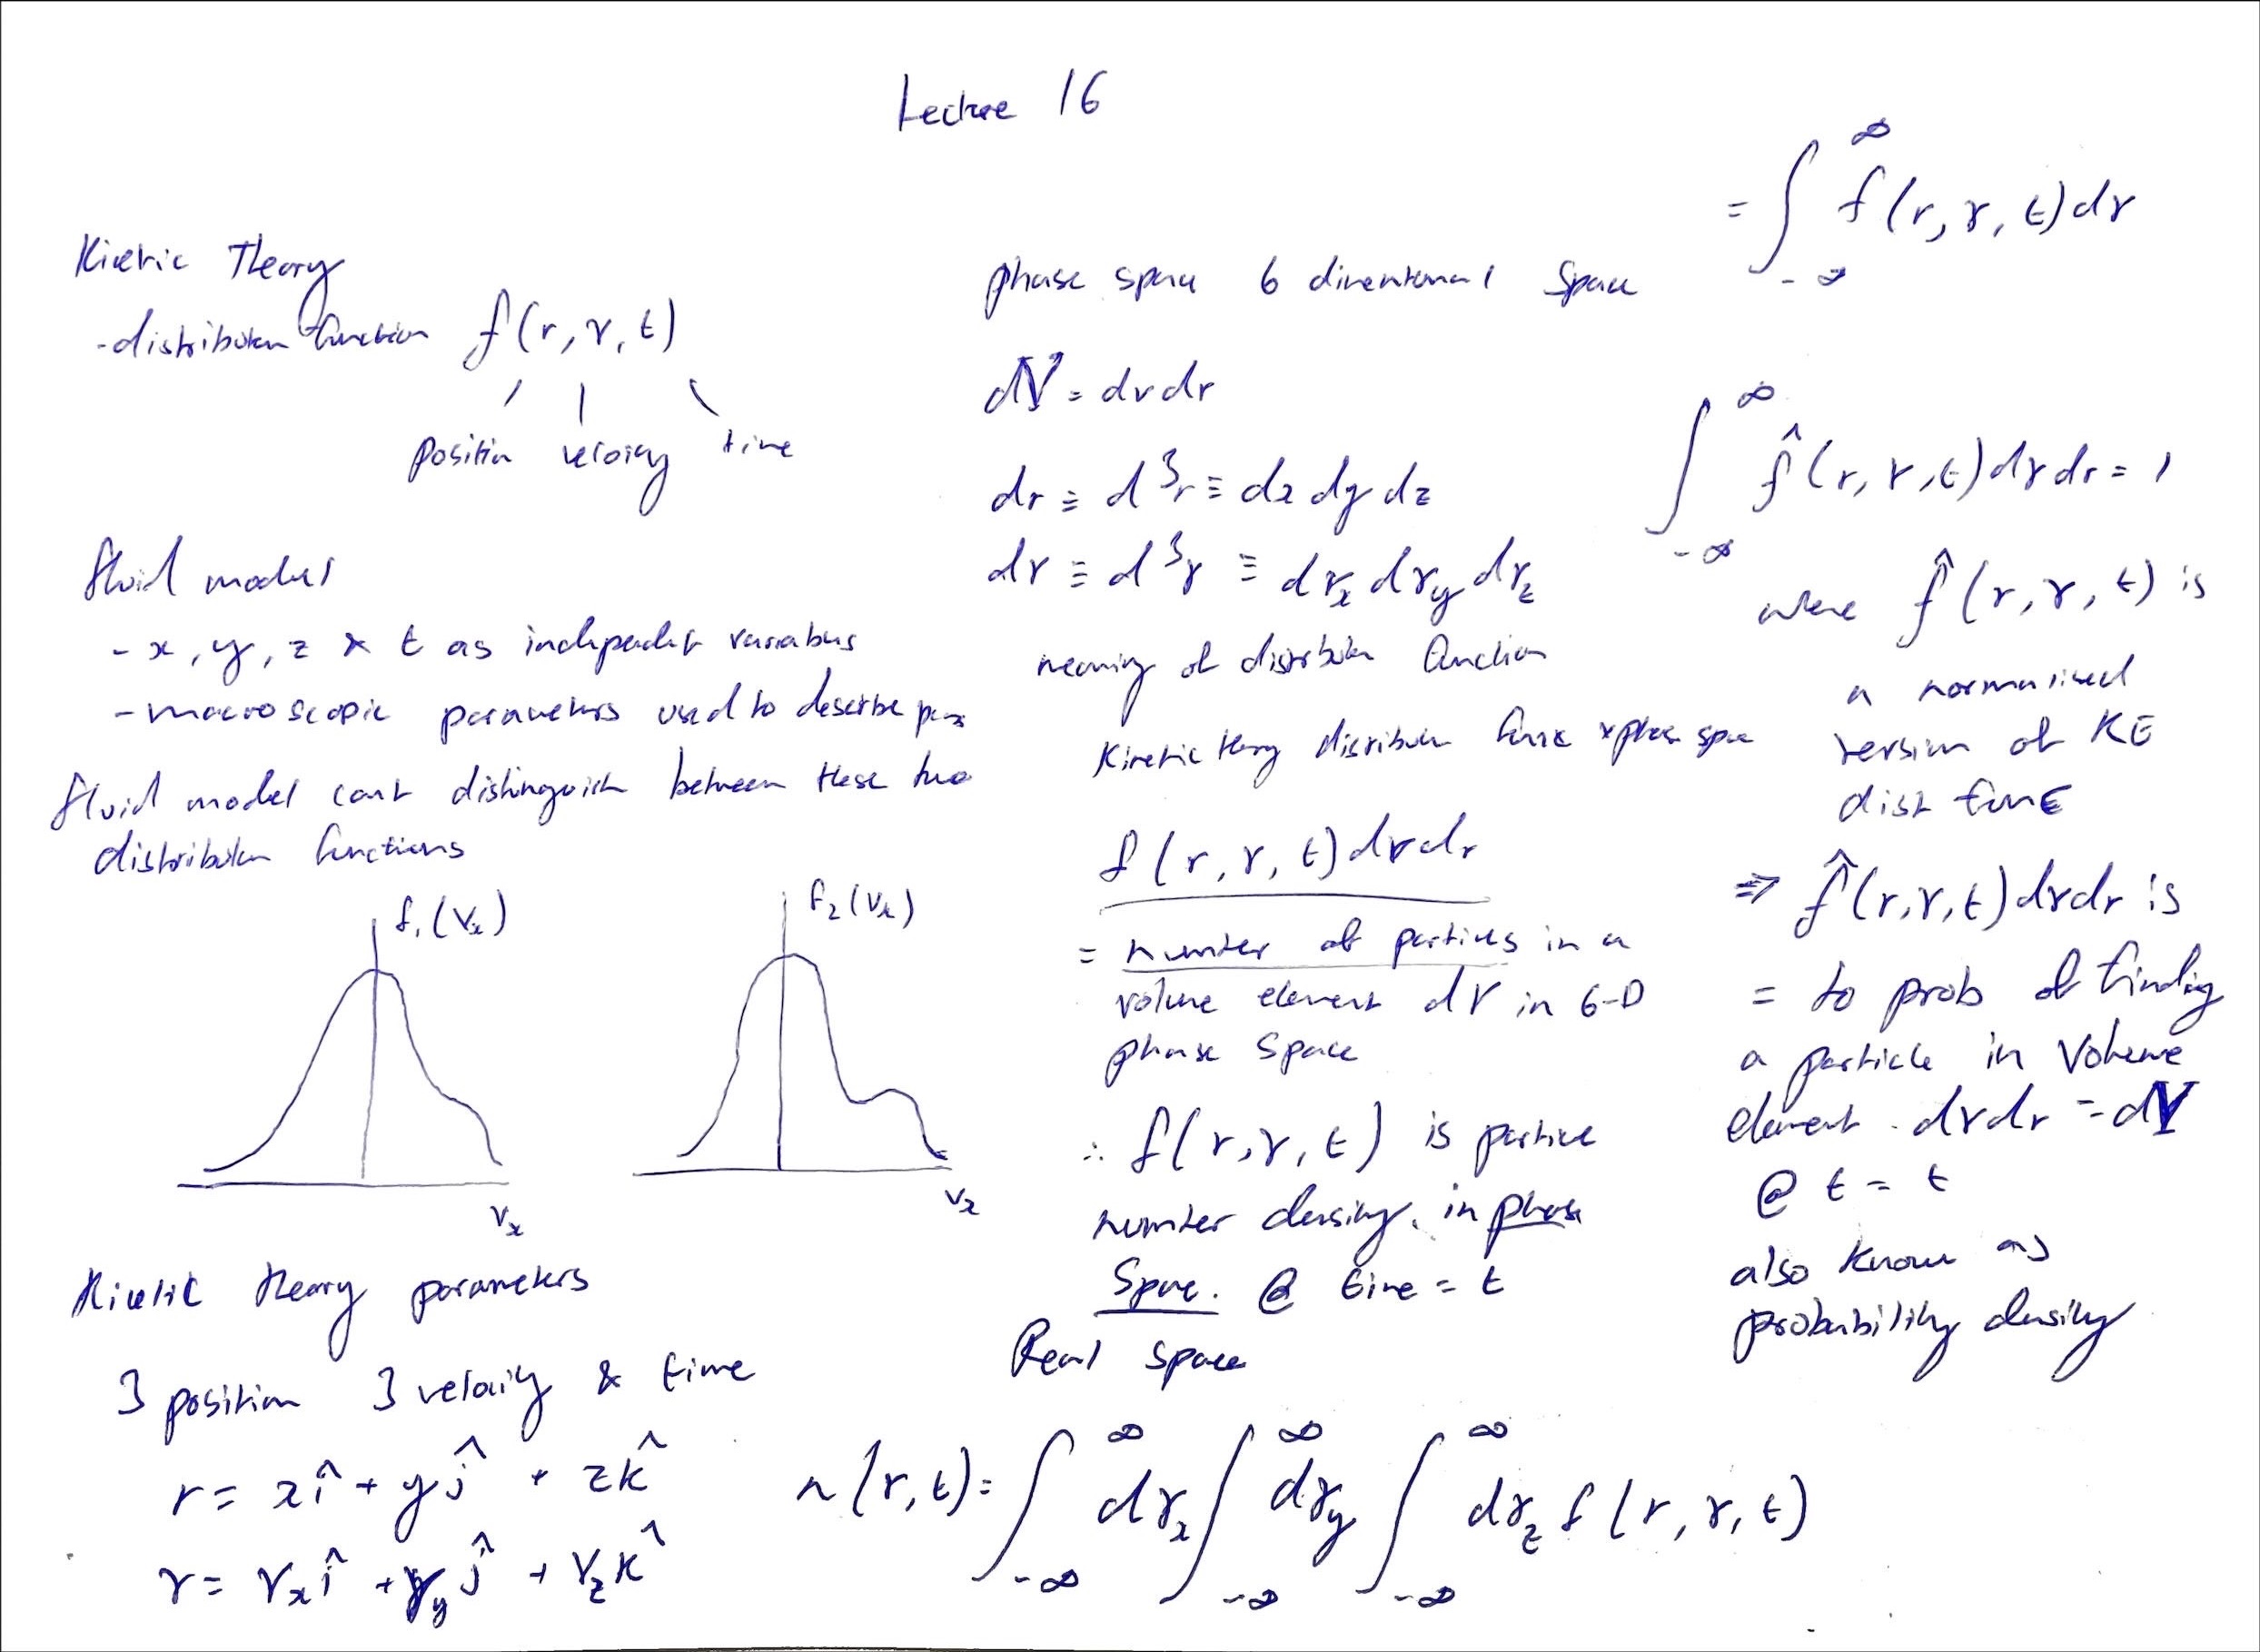 Lecture 16
Kinetic Theory
- distribution function f(r, v, t)
position velocity time
fluid model
- x, y, z & t as independent variables
- macroscopic parameters used to describe
fluid model can't distinguish between these two
distribution functions
f₁(vₓ)
vₓ
f₂(vₓ)
vₓ
Kinetic theory parameters
3 position 3 velocity & time
r = xî + yĵ + zk̂
v = vₓî + v_yĵ + v_zk̂
phase space 6 dimensional space
dV = dvdr
dr ≡ d³r ≡ dx dy dz
dv ≡ d³v ≡ dvₓ dv_y dv_z
meaning of distribution function
Kinetic theory distribution func & phase space
f(r, v, t)dvdr
= number of particles in a
volume element dV in 6-D
phase space
∴ f(r, v, t) is particle
number density in phase
space. @ time = t
Real space
n(r, t) = ∫_{-∞}^{∞} dvₓ ∫_{-∞}^{∞} dv_y ∫_{-∞}^{∞} dv_z f(r, v, t)
= ∫_{-∞}^{∞} f(r, v, t)dv
∫_{-∞}^{∞} f̂(r, v, t)dvdr = 1
where f̂(r, v, t) is
a normalised
version of KE
dist func
⇒ f̂(r, v, t)dvdr is
= to prob of finding
a particle in volume
element dvdr = dV
@ t = t
also known as
probability density